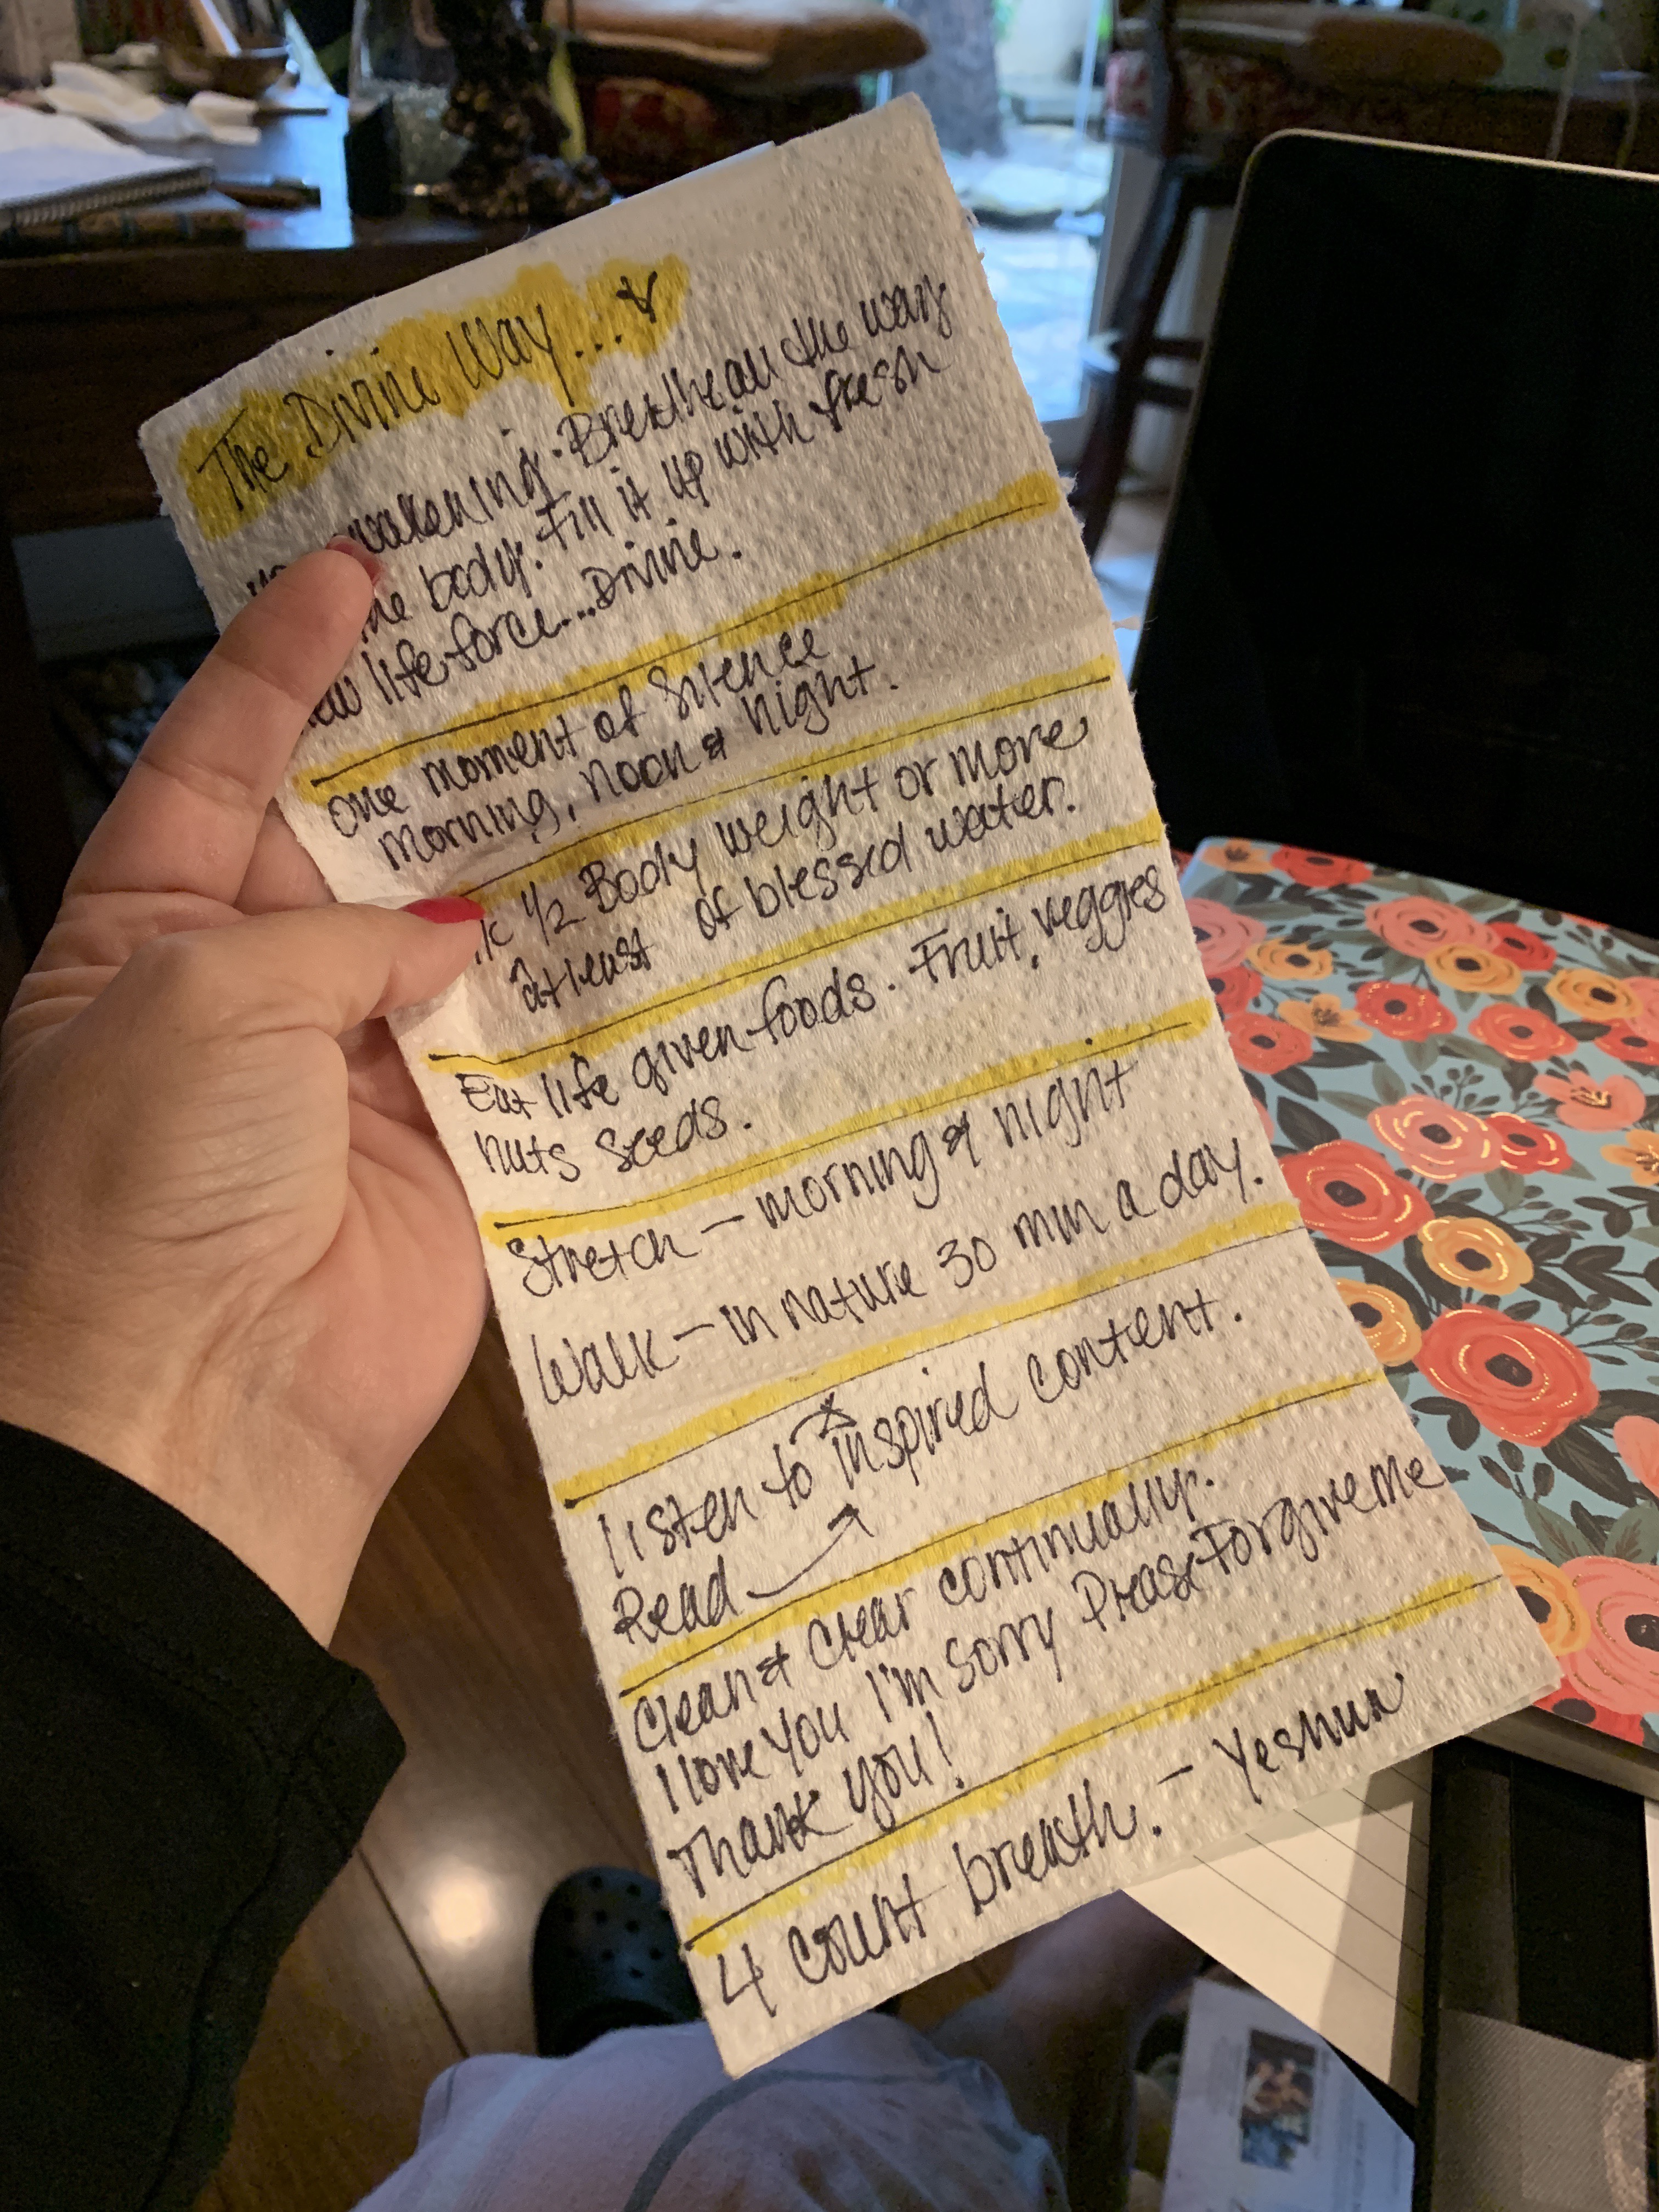 The Divine Way...
awakening. Breathe all the way
the body. Fill it up with fresh
life force... Divine.
One moment of Silence
Morning, noon & night.
1/2 Body weight or more
at least of blessed water.
Eat life given foods. Fruit, veggies
nuts seeds.
Stretch — morning & night
Walk — in nature 30 min a day.
listen to inspired content.
Read
Clean & Clear continually.
I love you I'm Sorry Please Forgive Me
Thank you!
4 Count breath. — Yeshua